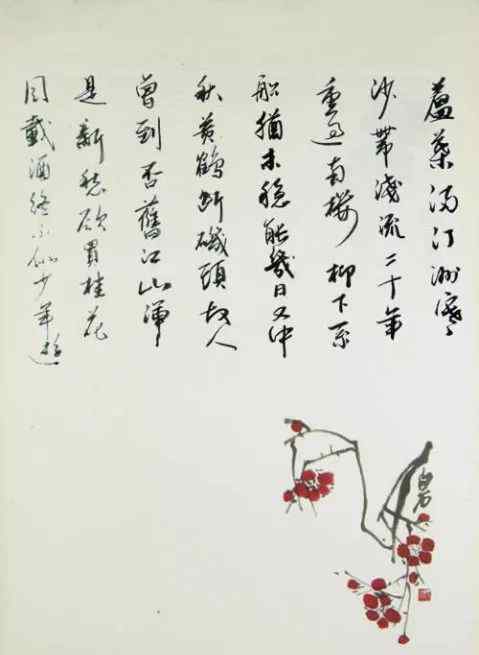 蘆葉滿汀洲寒
沙帶淺流二十年
重過南樓柳下系
船猶未穩能幾日又中
秋黃鶴斷磯頭故人
曾到否舊江山渾
是新愁欲買桂花
同載酒終不似少年遊
白石